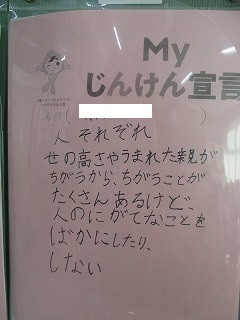 My
じんけん宣言
名前(
)
人 それぞれ
せの高さやうまれた親が
ちがうから、ちがうことが
たくさん あるけど、
人のにがてなことを
ばかにしたり、
しない